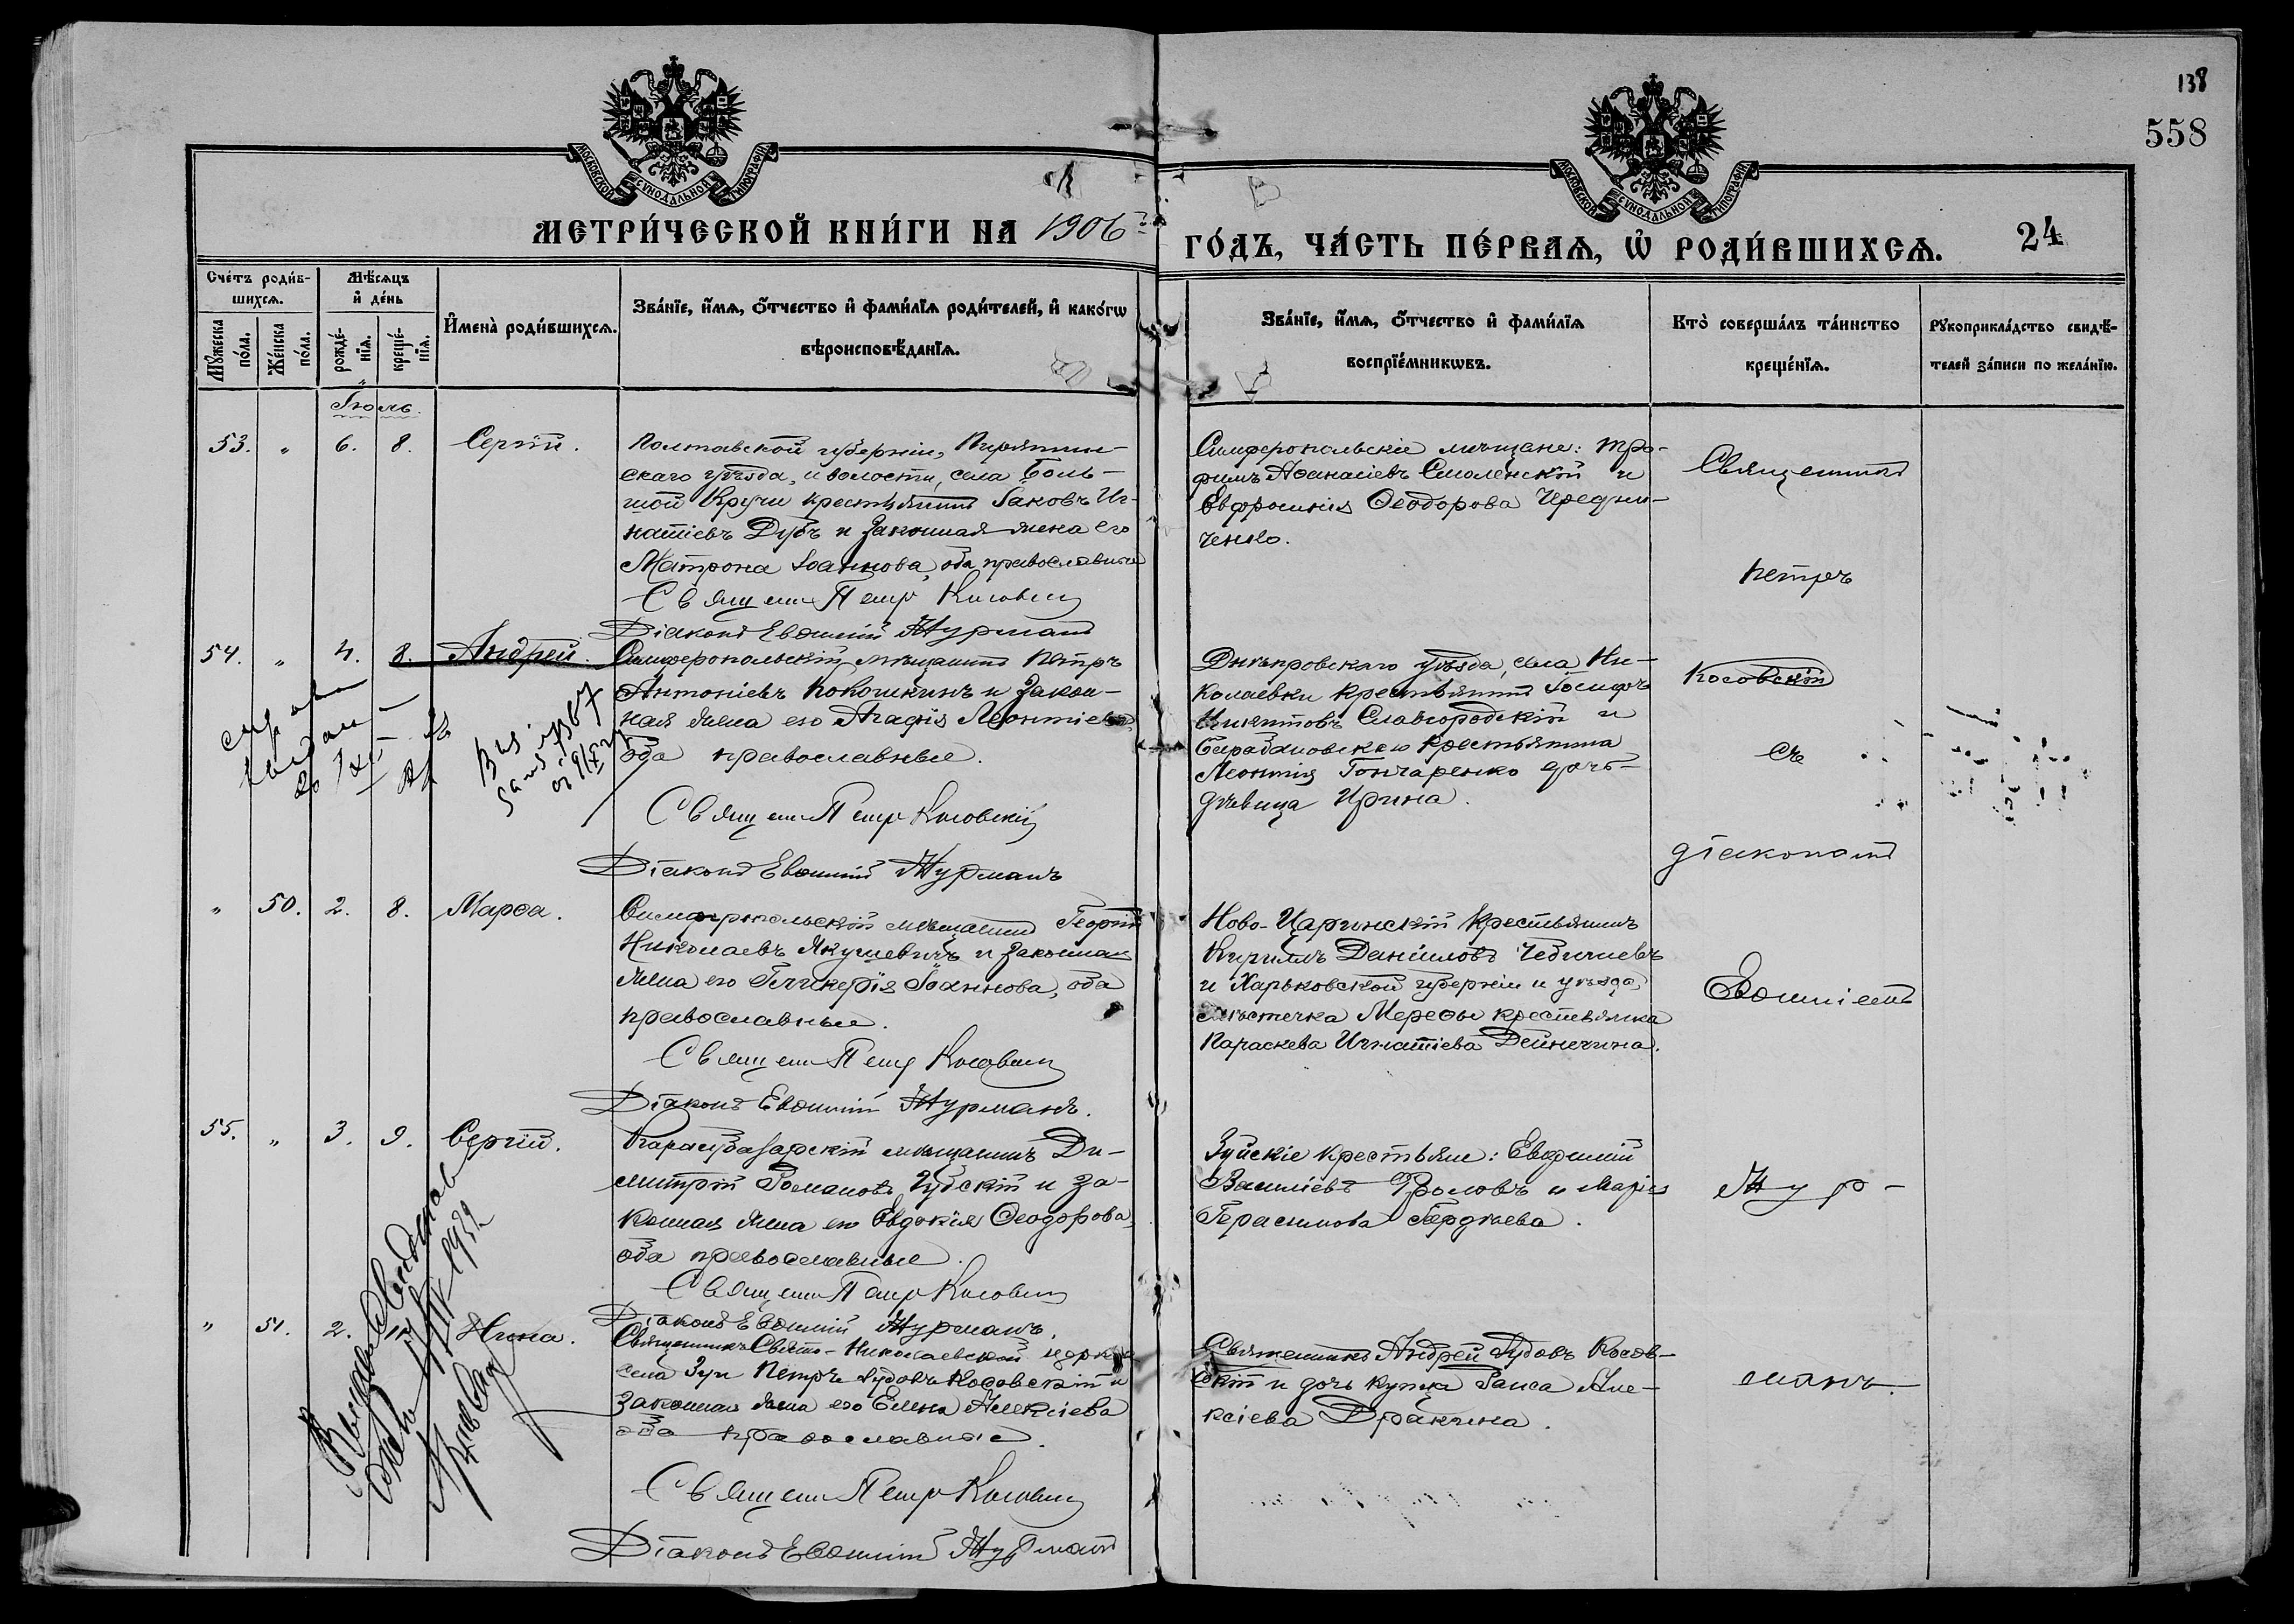 138
558
МОСКОВСКОЙ СѴНОДАЛЬНОЙ ТИПОГРАФІИ
МОСКОВСКОЙ СѴНОДАЛЬНОЙ ТИПОГРАФІИ
МЕТРИ́ЧЕСКОЙ КНИ́ГИ НА 1906 г.
ГО́ДЪ, ЧА́СТЬ ПЕ́РВАѦ, Ѡ҆ РОДИ́ВШИХСѦ.
24
Сче́тъ роди́в-
шихсѧ.
Мѣ́сѧцъ
и҆ де́нь
Мꙋ́жеска
по́ла.
Же́нска
по́ла.
рожде́-
нїѧ.
креще́-
нїѧ.
И҆мена̀ роди́вшихсѧ.
Зва́нїе, и҆́мѧ, ѻ҆́тчество и҆ фами́лїѧ роди́телей, и҆ како́гѡ
вѣроисповѣ́данїѧ.
Зва́нїе, и҆́мѧ, ѻ҆́тчество и҆ фами́лїѧ
воспрїе́мникѡвъ.
Кто̀ соверша́лъ та́инство
креще́нїѧ.
Рꙋкоприкла́дство свидѣ́-
телей за́писи по жела́нїю.
Іюль.
53. " 6. 8. Сергій.
Полтавской губерніи, Пирятин-
скаго уѣзда, и волости, села Боль-
шой Кручи крестьянинъ Іаковъ Иг-
натіевъ Дубъ и законная жена его
Матрона Іоаннова, оба православные
Священ Петр Косовскій
Діаконъ Евѳимій Журманъ
Симферопольскіе мѣщане: Тро-
фимъ Аѳанасіевъ Смоленскій и
Евфросинія Ѳеодорова Чередни-
ченко.
Священникъ
Петръ
54. " 4. 8. Андрей.
Симферопольскій мѣщанинъ Петръ
Антоніевъ Кокошкинъ и закон-
ная жена его Агафія Леонтіева
оба православные.
Священ Петр Косовскій
Діаконъ Евѳимій Журманъ
Днѣпровскаго уѣзда, села Ни-
колаевки крестьянинъ Іосифъ
Славгородскій и
крестьянина
Леонтія Гончаренко дочь-
дѣвица Ирина.
Косовскій
съ
діакономъ
" 50. 2. 8. Марѳа.
Симферопольскій мѣщанинъ Георгій
Николаевъ Якушевичъ и законная
жена его Гликерія Іоаннова, оба
православные.
Священ Петр Косовскій
Діаконъ Евѳимій Журманъ.
Ново-Царинскій крестьянинъ
Кириллъ Даніиловъ
и Харьковской губерніи и уѣзда,
мѣстечка Мерефы крестьянка
Параскева Игнатіева
Евѳиміемъ
55. " 3. 9. Сергій.
Карасубазарскій мѣщанинъ Ди-
митрій Романовъ Губскій и за-
конная жена его Евдокія Ѳеодорова,
оба православные.
Священ Петр Косовскій
Діаконъ Евѳимій Журманъ.
Зуйскіе крестьяне: Евфимій
Василіевъ Фроловъ и Марія
Герасимова Гердѣева.
Жур-
" 51. 2. Нина.
Священникъ Свято-Николаевской церкви
села Зуи Петръ Іудовъ Косовскій и
законная жена его Елена Алексіева
оба православные.
Священ Петр Косовскій
Діаконъ Евѳимій Журманъ
Священникъ Андрей Іудовъ Косов-
скій и дочь купца Раиса Але-
ксіева Дракина.
маномъ.